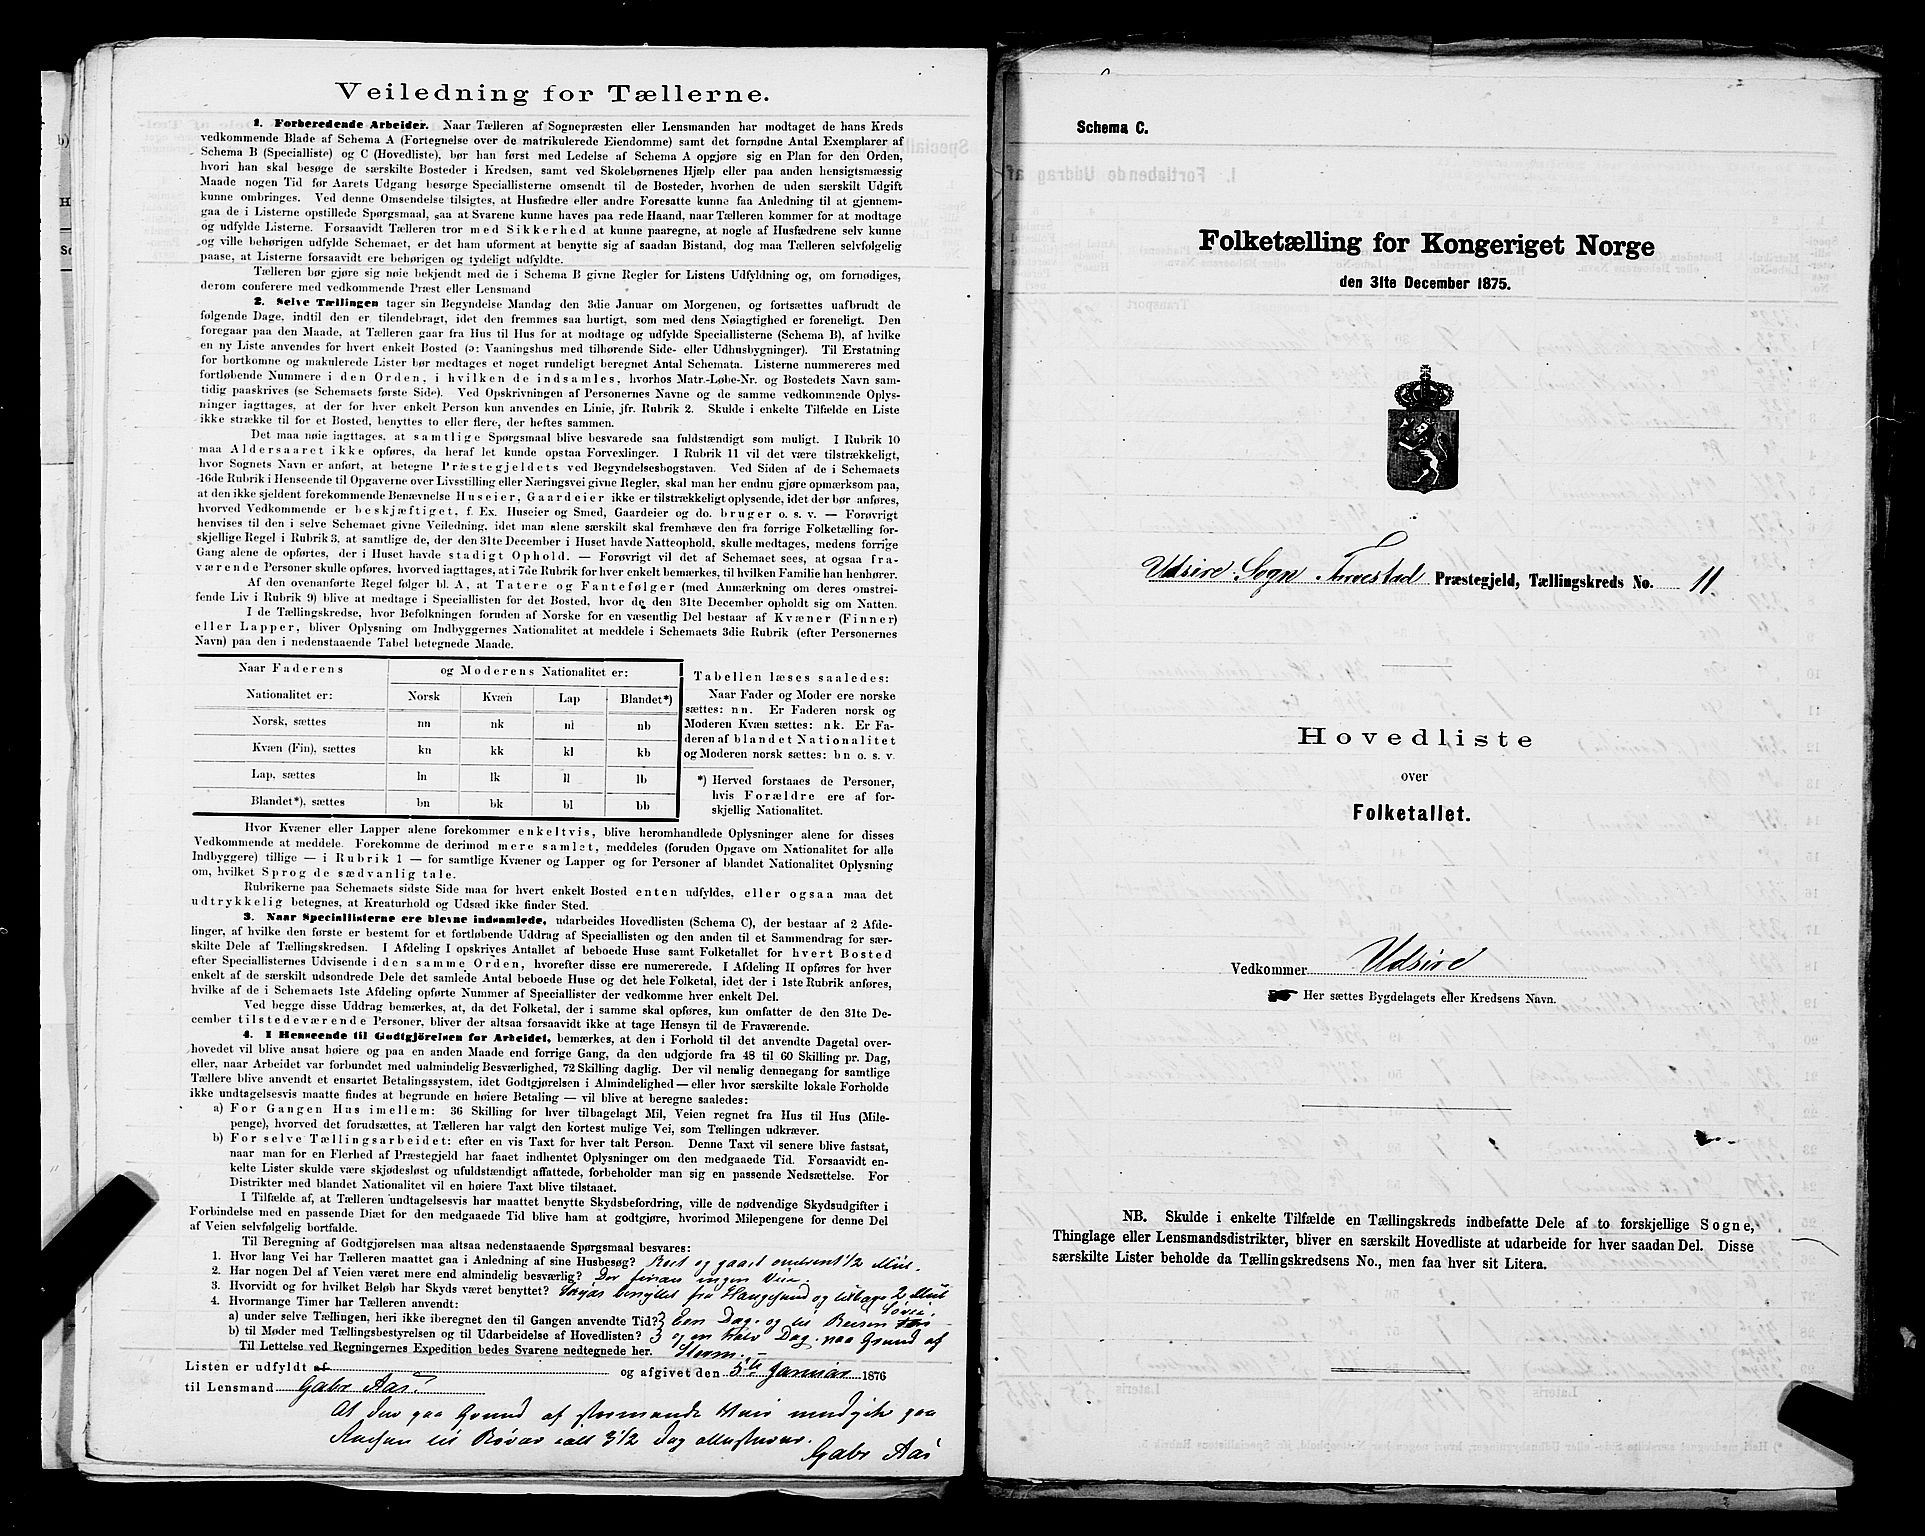 Veiledning for Tællerne.
1. Forberedende Arbeider. Naar Tælleren af Sognepræsten eller Lensmanden har modtaget de hans Kreds
vedkommende Blade af Schema A (Fortegnelse over de matrikulerede Eiendomme) samt det fornødne Antal Exemplarer af
Schema B (Specialliste) og C (Hovedliste), bør han først med Ledelse af Schema A opgjøre sig en Plan for den Orden,
hvori han skal besøge de særskilte Bosteder i Kredsen, samt ved Skolebørnenes Hjælp eller paa anden hensigtsmæssig
Maade nogen Tid før Aarets Udgang besørge Speciallisterne omsendt til de Bosteder, hvorhen de uden særskilt Udgift
kunne ombringes. Ved denne Omsendelse tilsigtes, at Husfædre eller andre Foresatte kunne faa Anledning til at gjennem-
gaa de i Listerne opstillede Spørgsmaal, saa at Svarene kunne haves paa rede Haand, naar Tælleren kommer for at modtage
og udfylde Listerne. Forsaavidt Tælleren tror med Sikkerhed at kunne paaregne, at nogle af Husfædrene selv kunne
og ville behørigen udfylde Schemaet, er det ham uforment at benytte sig af saadan Bistand, dog maa Tælleren selvfølgelig
paase, at Listerne forsaavidt ere behørigen og tydeligt udfyldte.
Tælleren bør gjøre sig nøie bekjendt med de i Schema B givne Regler for Listens Udfyldning og, om fornødiges,
derom conferere med vedkommende Præst eller Lensmand
2. Selve Tællingen tager sin Begyndelse Mandag den 3die Januar om Morgenen, og fortsættes uafbrudt de
følgende Dage, indtil den er tilendebragt, idet den fremmes saa hurtigt, som med dens Nøiagtighed er foreneligt. Den
foregaar paa den Maade, at Tælleren gaar fra Hus til Hus for at modtage og udfylde Speciallisterne (Schema B), af hvilke
en ny Liste anvendes for hvert enkelt Bosted (ɔ: Vaaningshus med tilhørende Side- eller Udhusbygninger). Til Erstatning
for bortkomne og makulerede Lister bør medtages et noget rundeligt beregnet Antal Schemata. Listerne nummereres med
fortløbende Nummere i den Orden, i hvilken de indsamles, hvorhos Matr.-Løbe-Nr. og Bostedets Navn sam-
tidig paaskrives (se Schemaets første Side). Ved Opskrivningen af Personernes Navne og de samme vedkommende Oplys-
ninger iagttages, at der for hver enkelt Person kun anvendes en Linie, jfr. Rubrik 2. Skulde i enkelte Tilfælde en Liste
ikke strække til for et Bosted, benyttes to eller flere, der heftes sammen.
Det maa nøie iagttages, at samtlige Spørgsmaal blive besvarede saa fuldstændigt som muligt. I Rubrik 10
maa Aldersaaret ikke opføres, da heraf let kunde opstaa Forvexlinger. I Rubrik 11 vil det være tilstrækkeligt,
hvor Sognets Navn er anført, at betegne Præstegjeldets ved Begyndelsesbogstaven. Ved Siden af de i Schemaets
16de Rubrik i Henseende til Opgaverne over Livsstilling eller Næringsvei givne Regler, skal man her endnu gjøre opmærksom paa,
at den ikke sjeldent forekommende Benævnelse Huseier, Gaardeier ikke er tilstrækkeligt oplysende, idet der bør anføres,
hvorved Vedkommende er beskjæftiget, f. Ex. Huseier og Smed, Gaardeier og do. bruger o. s. v. — Forøvrigt
henvises til den i selve Schemaet givne Veiledning, idet man alene særskilt skal fremhæve den fra forrige Folketælling for-
skjellige Regel i Rubrik 3, at samtlige de, der den 31te December i Huset havde Natteophold, skulle medtages, medens forrige
Gang alene de opførtes, der i Huset havde stadigt Ophold. — Forøvrigt vil det af Schemaet sees, at ogsaa fra-
værende Personer skulle opføres, hvorved iagttages, at i 7de Rubrik for hver enkelt bemærkes, til hvilken Familie han henhører.
Af den ovenanførte Regel følger bl. A, at Tatere og Fantefølger (med Anmærkning om deres omstrei-
fende Liv i Rubrik 9) blive at medtage i Speciallisten for det Bosted, hvor de den 31te December opholdt sig om Natten.
I de Tællingskredse, hvor Befolkningen foruden af Norske for en væsentlig Del bestaar af Kvæner (Finner)
eller Lapper, bliver Oplysning om Indbyggernes Nationalitet at meddele i Schemaets 3die Rubrik (efter Personernes
Navn) paa den i nedenstaaende Tabel betegnede Maade.
Naar Faderens og Moderens Nationalitet er:
Nationalitet er: Norsk Kvæn Lap Blandet*)
Norsk, sættes nn nk nl nb
Kvæn (Fin), sættes kn kk kl kb
Lap, sættes ln lk ll lb
Blandet*), sættes bn bk bl bb
Tabellen læses saaledes:
Naar Fader og Moder ere norske
sættes: nn. Er Faderen norsk og
Moderen Kvæn sættes: nk. Er Fa-
deren af blandet Nationalitet
og Moderen norsk sættes: bn o. s. v.
*) Herved forstaaes de Personer,
hvis Forældre ere af for-
skjellig Nationalitet.
Hvor Kvæner eller Lapper alene forekommer enkeltvis, blive heromhandlede Oplysninger alene for disses
Vedkommende at meddele. Forekomme de derimod mere samlet, meddeles (foruden Opgave om Nationalitet for alle
Indbyggere) tillige — i Rubrik 1 — for samtlige Kvæner og Lapper og for Personer af blandet Nationalitet Oplysning
om, hvilket Sprog de sædvanlig tale.
Rubrikerne paa Schemaets sidste Side maa for hvert enkelt Bosted enten udfyldes, eller ogsaa maa det
udtrykkelig betegnes, at Kreaturhold og Udsæd ikke finder Sted.
3. Naar Speciallisterne ere blevne indsamlede, udarbeides Hovedlisten (Schema C), der bestaar af 2 Afde-
linger, af hvilke den første er bestemt for et fortløbende Uddrag af Speciallisten og den anden til et Sammendrag for sær-
skilte Dele af Tællingskredsen. I Afdeling I opskrives Antallet af beboede Huse samt Folketallet for hvert Bosted
efter Speciallisternes Udvisende i den samme Orden, hvorefter disse ere numererede. I Afdeling II opføres for hver
enkelt af de særskilt udsondrede Dele det samlede Antal beboede Huse og det hele Folketal, idet der i 1ste Rubrik anføres,
hvilke af de i Schemaets 1ste Afdeling opførte Nummer af Speciallister der vedkomme hver enkelt Del.
Ved begge disse Uddrag bemærkes, at, da det Folketal, der i samme skal opføres, kun omfatter de den 31te De-
cember tilstedeværende Personer, bliver der altsaa forsaavidt ikke at tage Hensyn til de Fraværende.
4. I Henseende til Godtgjörelsen for Arbeidet, bemærkes, at den i Forhold til det anvendte Dagetal over-
hovedet vil blive ansat høiere og paa en anden Maade end forrige Gang, da den udgjorde fra 48 til 60 Skilling pr. Dag,
eller, naar Arbeidet var forbundet med ualmindelig Besværlighed, 72 Skilling daglig. Der vil nemlig dennegang for samtlige
Tællere blive anvendt et ensartet Betalingssystem, idet Godtgjørelsen i Almindelighed — eller hvor særskilte lokale Forholde
ikke undtagelsesvis maatte findes at begrunde en høiere Betaling — vil blive at beregne saaledes:
a) For Gangen Hus imellem: 36 Skilling for hver tilbagelagt Mil, Veien regnet fra Hus til Hus (Mile-
penge), hvorved det forudsættes, at Tælleren har valgt den kortest mulige Vei, som Tællingen udkræver.
b) For selve Tællingsarbeidet: efter en vis Taxt for hver talt Person. Denne Taxt vil senere blive fastsat,
naar man for en Flerhed af Præstegjeld har faaet indhentet Oplysninger om den medgaaede Tid. Forsaavidt en-
kelte Lister skulde være skjødesløst og ufuldstændigt affattede, forbeholder man sig en passende Nedsættelse. For
Distrikter med blandet Nationalitet vil en høiere Taxt blive tilstaaet.
I Tilfælde af, at Tælleren undtagelsesvis har maattet benytte Skydsbefordring, ville de nødvendige Skydsudgifter i
Forbindelse med en passende Diæt for den medgaaede Tid blive ham at godtgjøre, hvorimod Milepengene for denne Del
af Veien selvfølgelig bortfalde.
Til Beregning af Godtgjørelsen maa altsaa nedenstaaende Spørgsmaal besvares:
1. Hvor lang Vei har Tælleren maattet gaa i Anledning af sine Husbesøg? Roet og gaaet omtrent 1/2 Miil.
2. Har nogen Del af Veien været mere end almindelig besværlig? Der findes ingen Veie.
3. Hvorvidt og for hvilket Beløb har Skyds været benyttet? Skyds benyttet fra Haugesund og tilbage 2 Miil
Søvei.
4. Hvormange Timer har Tælleren anvendt:
a) under selve Tællingen, heri ikke iberegnet den til Gangen anvendte Tid? Een Dag og til Reisen
b) til Møder med Tællingsbestyrelsen og til Udarbeidelse af Hovedlisten? 3 og en halv Dag paa Grund af
Til Lettelse ved Regningernes Expedition bedes Svarene nedtegnede her. Storm.
Listen er udfyldt af og afgivet den 5te Januar 1876
til Lensmand Gabr Aas.
At der paa Grund af stormende Veir medgik paa
til Røvær ialt 3 1/2 Dag
Gabr Aas
Schema C.
Folketælling for Kongeriget Norge
den 31te December 1875.
Udsire Sogn Torvestad Præstegjeld, Tællingskreds No. 11.
Hovedliste
over
Folketallet.
Vedkommer Udsire
Her sættes Bygdelagets eller Kredsens Navn.
NB. Skulde i enkelte Tilfælde en Tællingskreds indbefatte Dele af to forskjellige Sogne,
Thinglage eller Lensmandsdistrikter, bliver en særskilt Hovedliste at udarbeide for hver saadan Del. Disse
særskilte Lister beholde da Tællingskredsens No., men faa hver sit Litera.